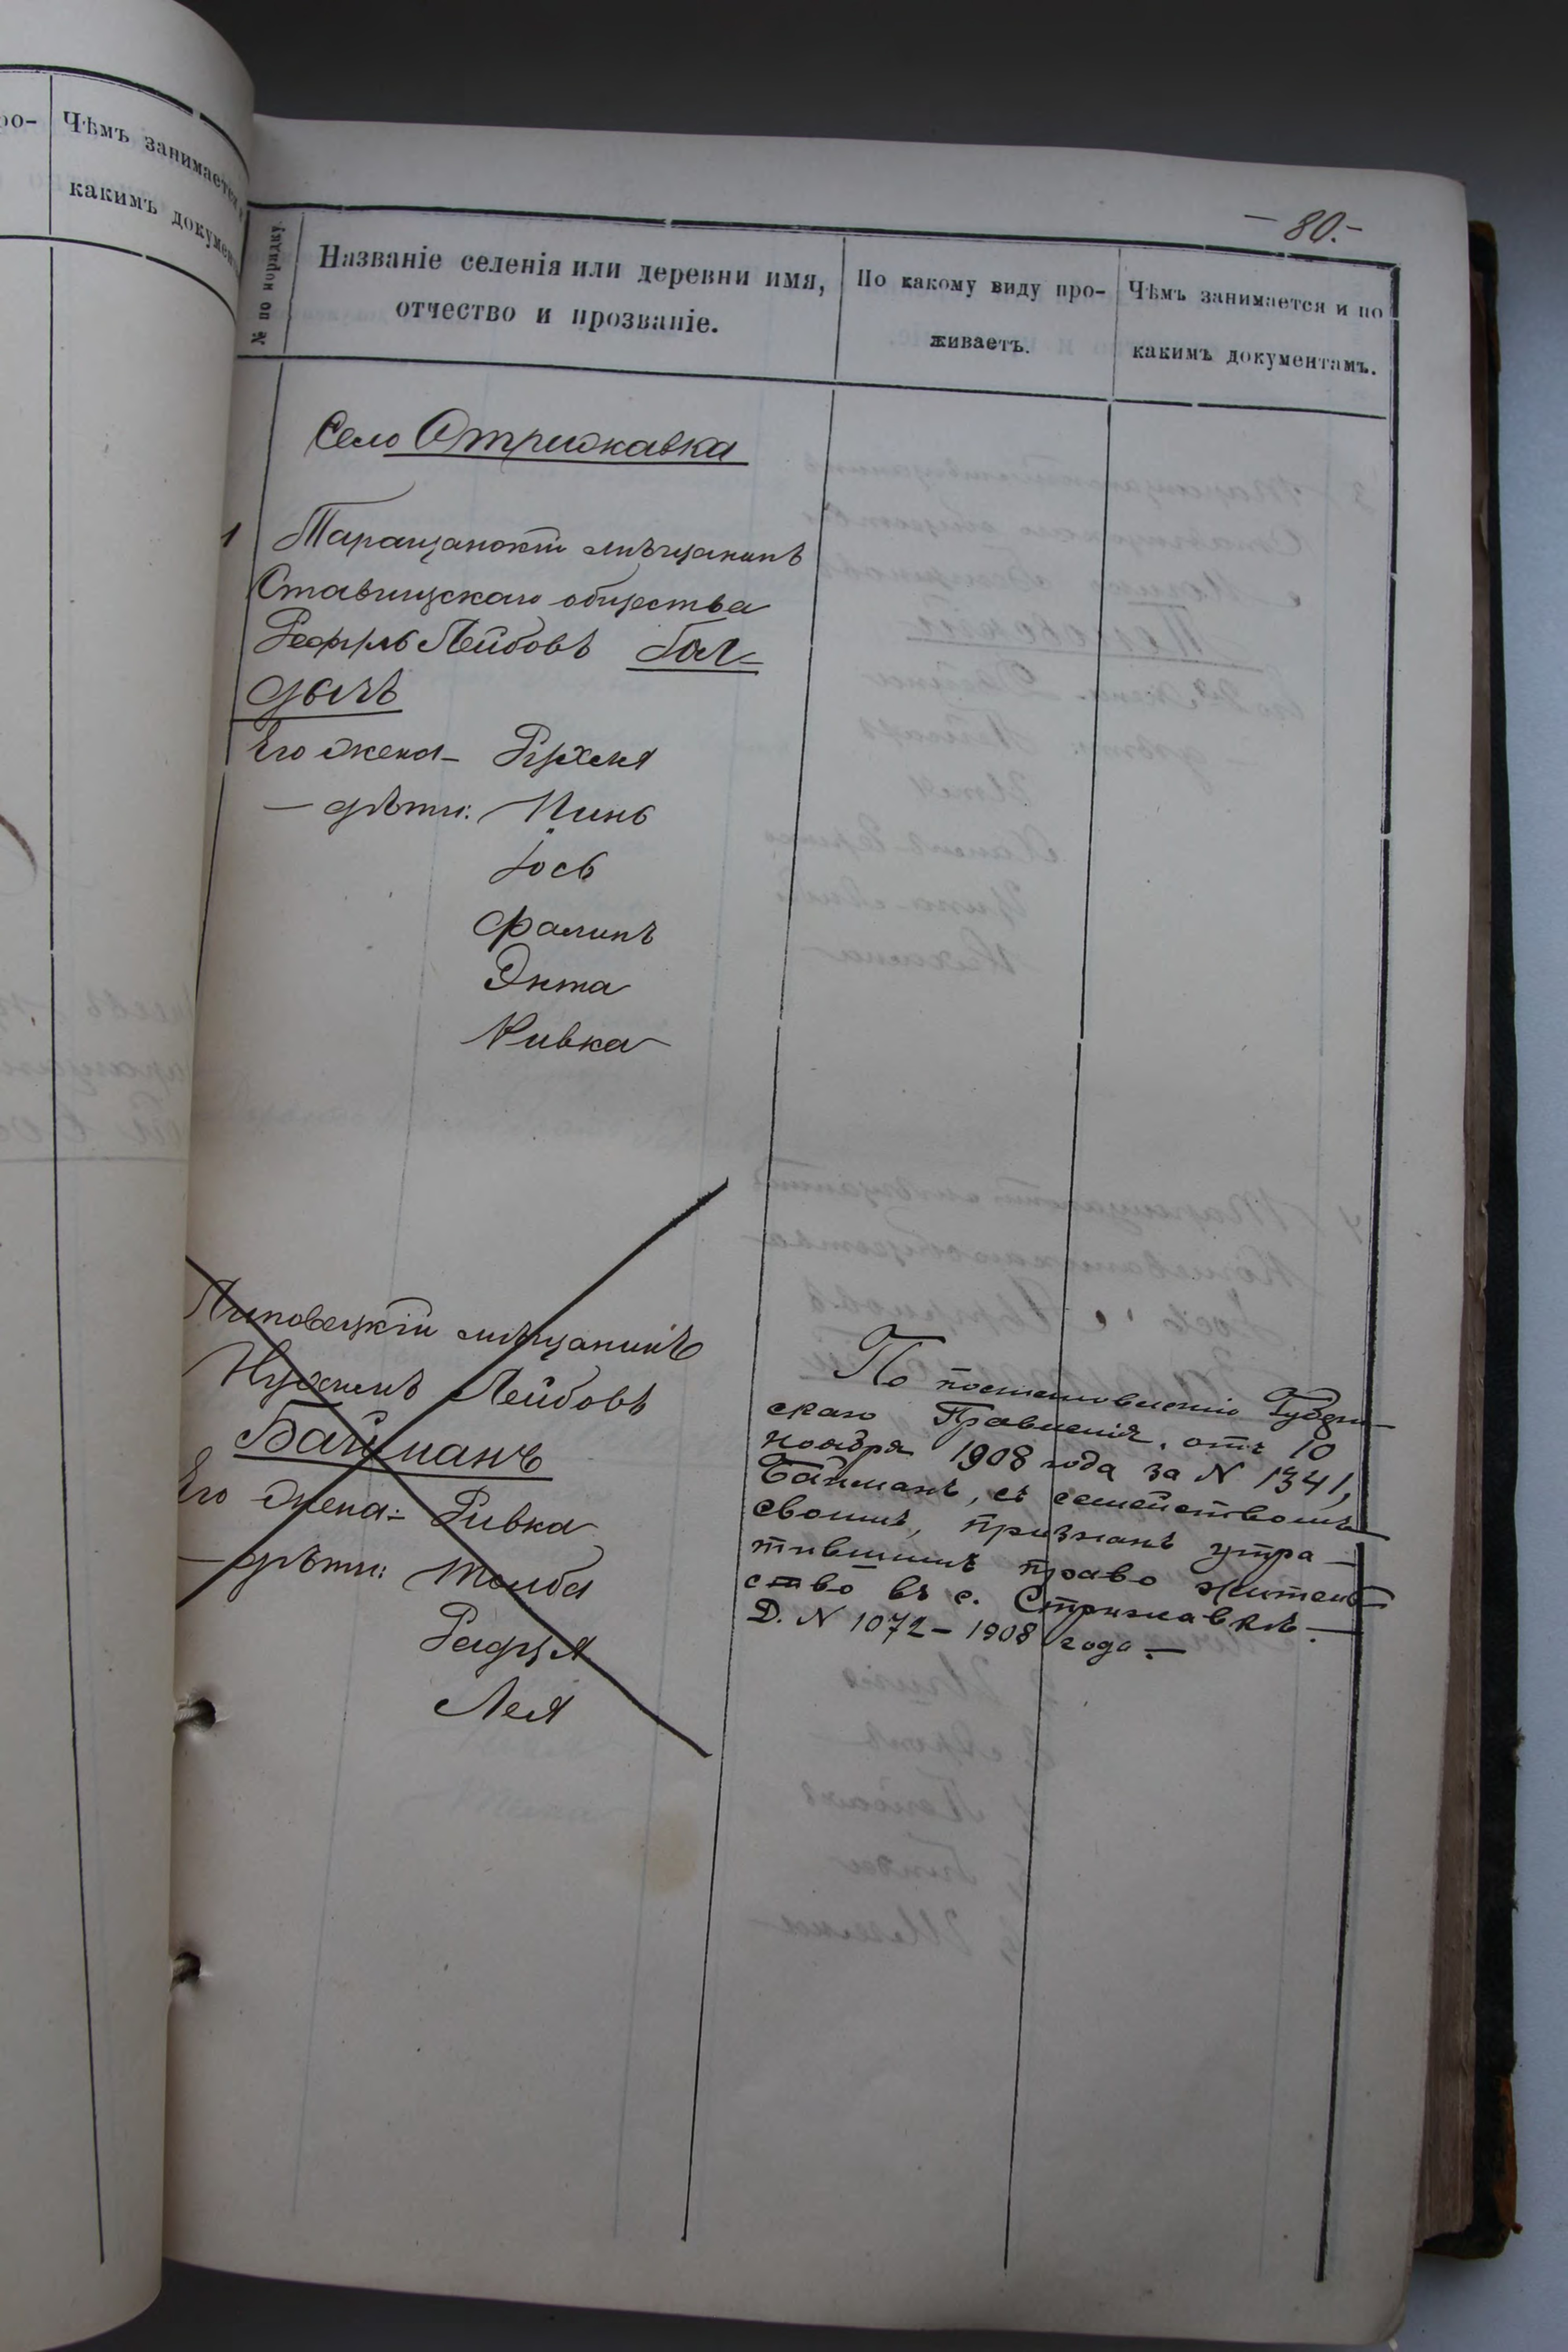 ро-
Чѣмъ занимается и
какимъ докумен
- 80. -
№ по порядку.
Названіе селенія или деревни имя,
отчество и прозваніе.
По какому виду про-
живаетъ.
Чѣмъ занимается и по
какимъ документамъ.
Село Стрижавка
1 Таращанскій мѣщанинъ
Ставищскаго общества
Лейбовъ Бол-
дычъ
Его жена - Рухля
- дѣти: Пинь
Іось
Фалинъ
Энта
Ривка
Липовецкій мѣщанинъ
Нухимъ Лейбовъ
Байманъ
Его жена - Ривка
- дѣти: Тойба
Рейзя
Лея
По постановленію Губерн-
скаго Правленія, отъ 10
ноября 1908 года за N 1341,
Байманъ, съ семействомъ
своимъ, признанъ утра-
тившимъ право житель-
ство въ с. Стрижавкѣ. -
Д. N 1072 - 1908 года. -